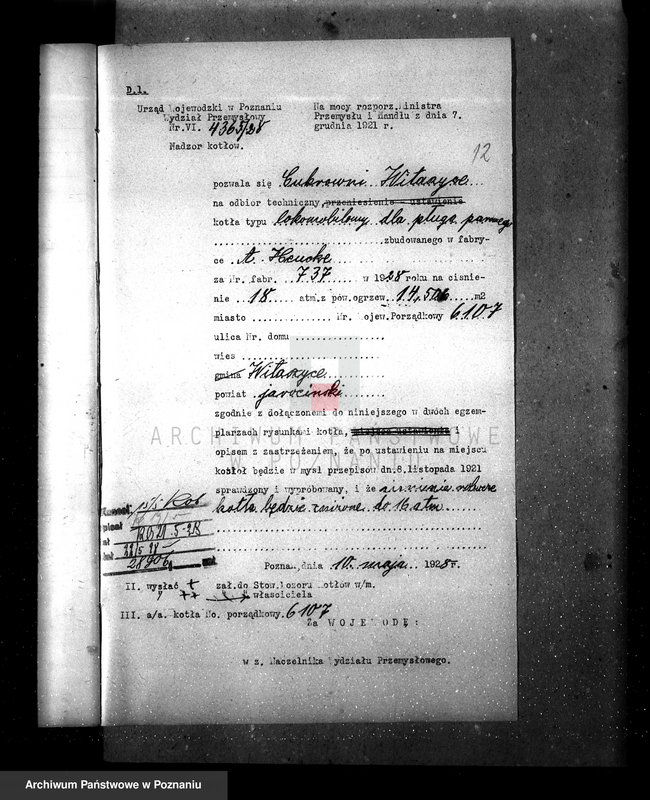 D.1.
Urząd Wojewodzki w Poznaniu
Wydział Przemysłowy
Nr.VI. 4363/28
Nadzor kotłow.
Na mocy rozporz.Ministra
Przemysłu i Handlu z dnia 7.
grudnia 1921 r.
12
pozwala się Cukrowni Witaszyce
na odbior techniczny, przeniesienie - ustawienie
kotła typu lokomobilowy dla pługa parowego
zbudowanego w fabry-
ce A. Heucke
za Nr. fabr. 737 w 1928 roku na ciśnie-
nie 18 atm.z pow.ogrzew. 14,506 m2
miasto Nr. Wojew.Porządkowy 6107
ulica Nr. domu
wies
gmina Witaszyce
powiat jarociński
zgodnie z dołączonemi do niniejszego w dwóch egzem-
plarzach rysunkami kotła, i
opisem z zastrzeżeniem, że po ustawieniu na miejscu
kocioł będzie w mysl przepisów dn.8. listopada 1921
sprawdzony i wypróbowany, i że ciśnienie robocze
kotła będzie zniżone do 16 atm
Poznań,dnia 10. maja 1928 r.
II. wysłać + zał.do Stow.Dozoru Kotłów w/m.
" ++ właściciela
III. a/a. kotła No. porządkowy. 6107
Za WOJEWODĘ:
w z. Naczelnika Wydziału Przemysłowego.
15/5
22/5 28
28906
ARCHIWUM PAŃSTWOWE
W POZNANIU
Archiwum Państwowe w Poznaniu